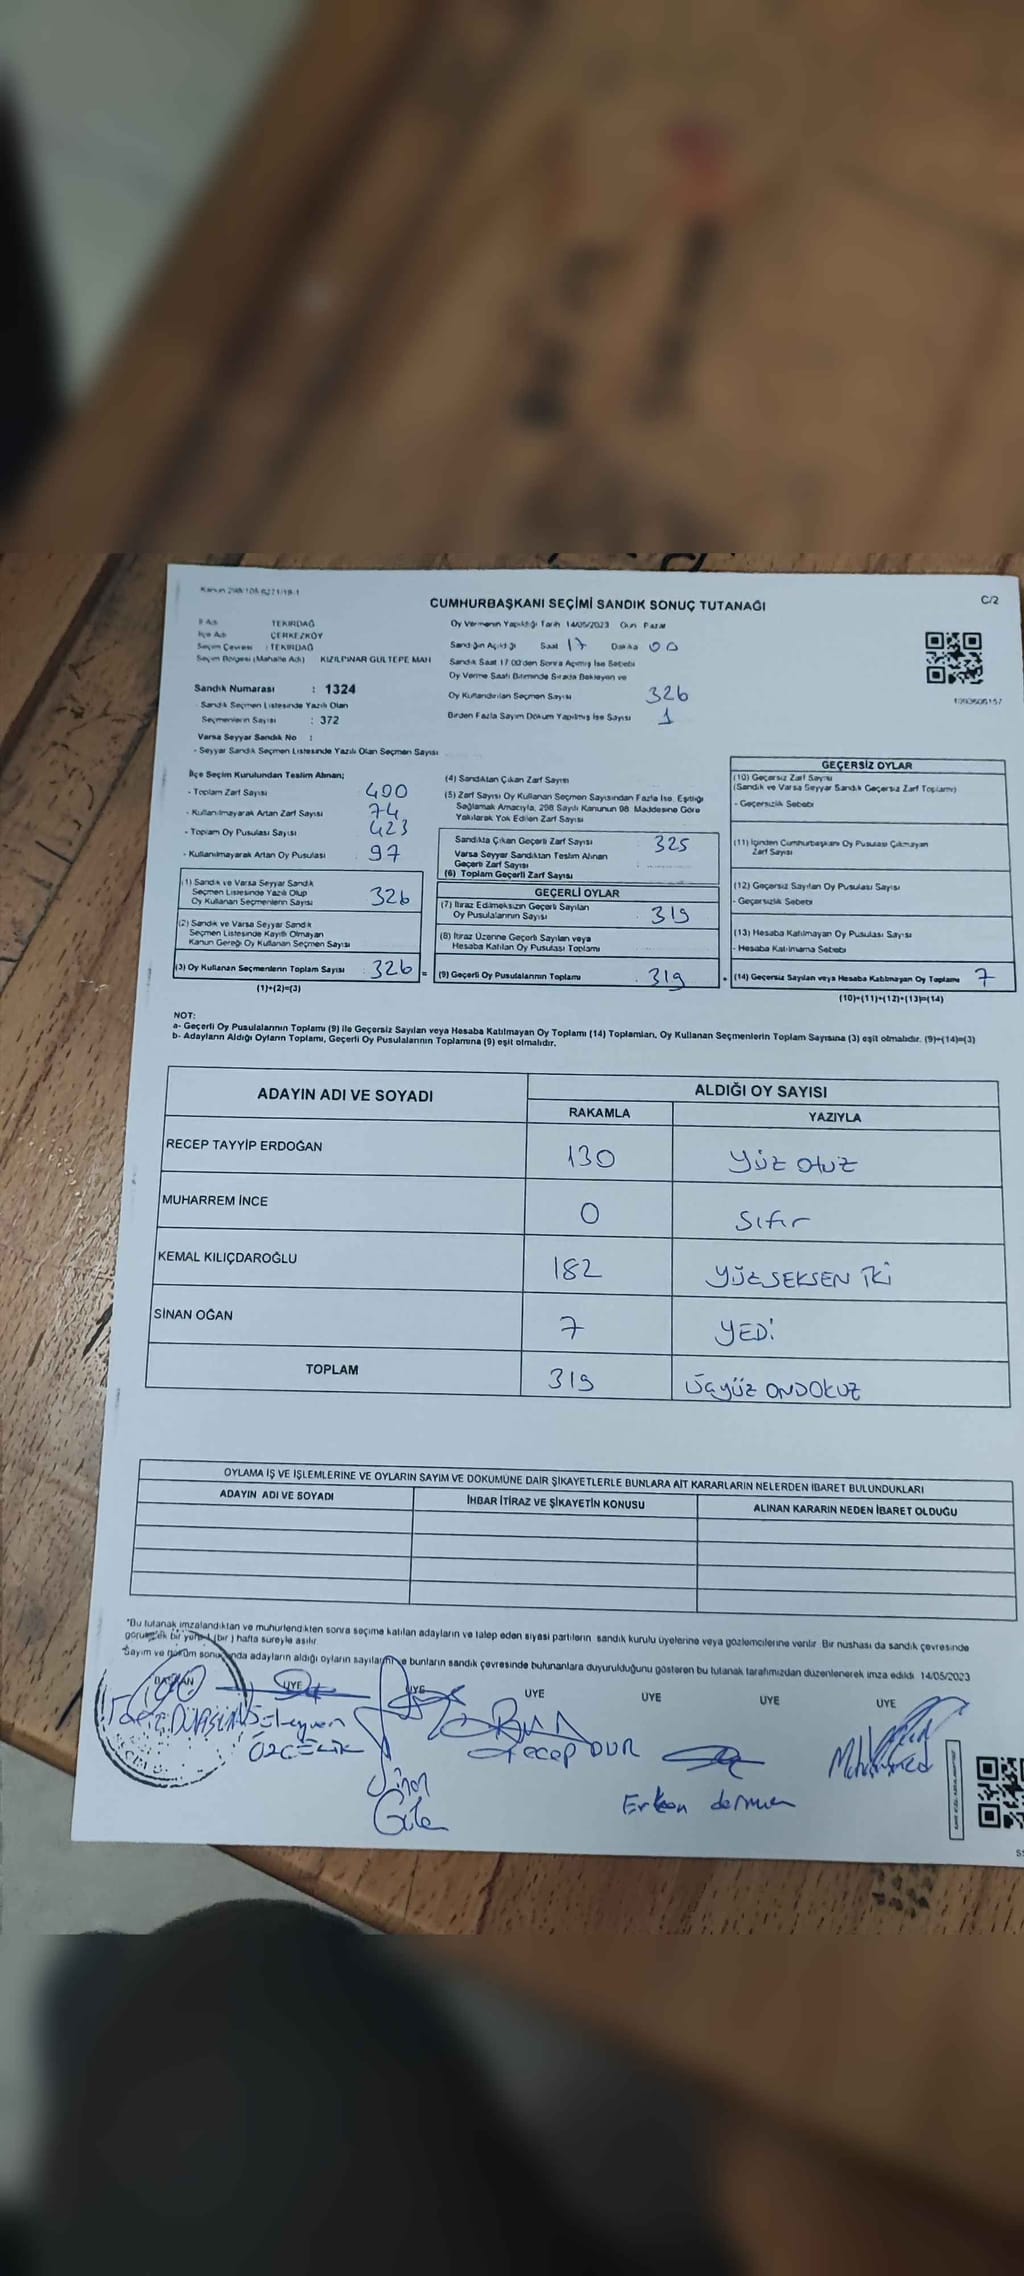 CUMHURBAŞKANI SEÇİMİ SANDIK SONUÇ TUTANAĞI
C/2
İl Adı TEKİRDAĞ
İlçe Adı ÇERKEZKÖY
Seçim Çevresi : TEKİRDAĞ
Seçim Bölgesi (Mahalle Adı) KIZILPINAR GÜLTEPE MAH
Sandık Numarası : 1324
Sandık Seçmen Listesinde Yazılı Olan
Seçmenlerin Sayısı : 372
Varsa Seyyar Sandık No :
- Seyyar Sandık Seçmen Listesinde Yazılı Olan Seçmen Sayısı
Oy Vermenin Yapıldığı Tarih 14/05/2023 Gün Pazar
Sandığın Açıldığı Saat 17 Dakika 00
Sandık Saat 17 00'den Sonra Açılmış İse Sebebi
Oy Verme Saati Bitiminde Sırada Bekleyen ve
Oy Kullandırılan Seçmen Sayısı 326
Birden Fazla Sayım Döküm Yapılmış İse Sayısı 1
İlçe Seçim Kurulundan Teslim Alınan;
- Toplam Zarf Sayısı 400
- Kullanılmayarak Artan Zarf Sayısı 74
- Toplam Oy Pusulası Sayısı 423
- Kullanılmayarak Artan Oy Pusulası 97
(1) Sandık ve Varsa Seyyar Sandık
Seçmen Listesinde Yazılı Olup
Oy Kullanan Seçmenlerin Sayısı 326
(2) Sandık ve Varsa Seyyar Sandık
Seçmen Listesinde Kayıtlı Olmayan
Kanun Gereği Oy Kullanan Seçmen Sayısı
(3) Oy Kullanan Seçmenlerin Toplam Sayısı 326 =
(1)+(2)=(3)
(4) Sandıktan Çıkan Zarf Sayısı
(5) Zarf Sayısı Oy Kullanan Seçmen Sayısından Fazla İse, Eşitliği
Sağlamak Amacıyla, 298 Sayılı Kanunun 98. Maddesine Göre
Yakılarak Yok Edilen Zarf Sayısı
Sandıkta Çıkan Geçerli Zarf Sayısı 325
Varsa Seyyar Sandıktan Teslim Alınan
Geçerli Zarf Sayısı
(6) Toplam Geçerli Zarf Sayısı
GEÇERLİ OYLAR
(7) İtiraz Edilmeksizin Geçerli Sayılan
Oy Pusulalarının Sayısı 319
(8) İtiraz Üzerine Geçerli Sayılan veya
Hesaba Katılan Oy Pusulası Toplamı
(9) Geçerli Oy Pusulalarının Toplamı 319 +
GEÇERSİZ OYLAR
(10) Geçersiz Zarf Sayısı
(Sandık ve Varsa Seyyar Sandık Geçersiz Zarf Toplamı)
- Geçersizlik Sebebi
(11) İçinden Cumhurbaşkanı Oy Pusulası Çıkmayan
Zarf Sayısı
(12) Geçersiz Sayılan Oy Pusulası Sayısı
- Geçersizlik Sebebi
(13) Hesaba Katılmayan Oy Pusulası Sayısı
- Hesaba Katılmama Sebebi
(14) Geçersiz Sayılan veya Hesaba Katılmayan Oy Toplamı 7
(10)+(11)+(12)+(13)=(14)
NOT:
a- Geçerli Oy Pusulalarının Toplamı (9) ile Geçersiz Sayılan veya Hesaba Katılmayan Oy Toplamı (14) Toplamları, Oy Kullanan Seçmenlerin Toplam Sayısına (3) eşit olmalıdır. (9)+(14)=(3)
b- Adayların Aldığı Oyların Toplamı, Geçerli Oy Pusulalarının Toplamına (9) eşit olmalıdır.
ADAYIN ADI VE SOYADI
ALDIĞI OY SAYISI
RAKAMLA YAZIYLA
RECEP TAYYİP ERDOĞAN 130 Yüz otuz
MUHARREM İNCE 0 Sıfır
KEMAL KILIÇDAROĞLU 182 YÜZSEKSEN İKİ
SİNAN OĞAN 7 YEDİ
TOPLAM 319 Üçyüz ONDOKUZ
OYLAMA İŞ VE İŞLEMLERİNE VE OYLARIN SAYIM VE DÖKÜMÜNE DAİR ŞİKAYETLERLE BUNLARA AİT KARARLARIN NELERDEN İBARET BULUNDUKLARI
ADAYIN ADI VE SOYADI İHBAR İTİRAZ VE ŞİKAYETİN KONUSU ALINAN KARARIN NEDEN İBARET OLDUĞU
*Bu tutanak imzalandıktan ve mühürlendikten sonra seçime katılan adayların ve talep eden siyasi partilerin sandık kurulu üyelerine veya gözlemcilerine verilir. Bir nüshası da sandık çevresinde
görülecek bir yere 1 (bir) hafta süreyle asılır.
Sayım ve döküm sonucunda adayların aldığı oyların sayılarını ve bunların sandık çevresinde bulunanlara duyurulduğunu gösteren bu tutanak tarafımızdan düzenlenerek imza edildi. 14/05/2023
BAŞKAN ÜYE ÜYE ÜYE ÜYE ÜYE ÜYE
Süleyman
ÖZÇELİK
Recep DUR
Muhammed